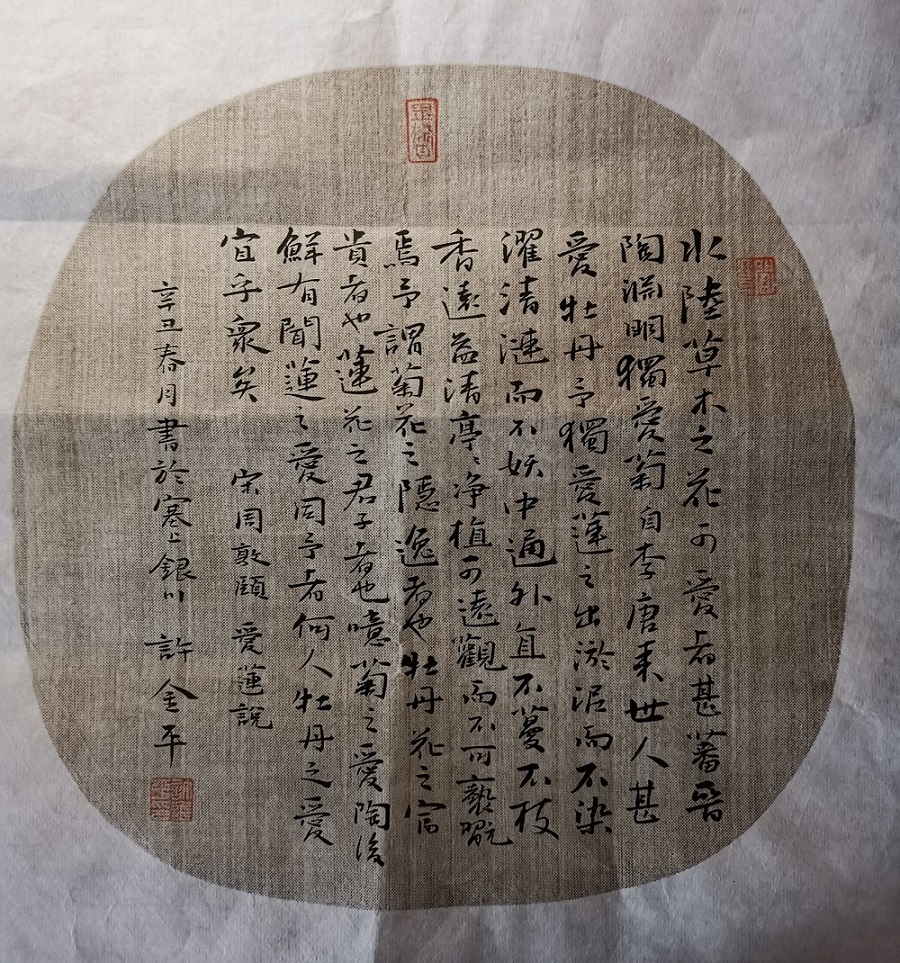 水陸草木之花可愛者甚蕃晉
陶淵明獨愛菊自李唐来世人甚
愛牡丹予獨愛蓮之出淤泥而不染
濯清漣而不妖中通外直不蔓不枝
香遠益清亭〻净植可遠觀而不可褻翫
焉予謂菊花之隱逸者也牡丹花之富
貴者也蓮花之君子者也噫菊之愛陶後
鮮有聞蓮之愛同予者何人牡丹之愛
宜乎衆矣 宋周敦頤 愛蓮說
辛丑春月書於塞上銀川 許金平